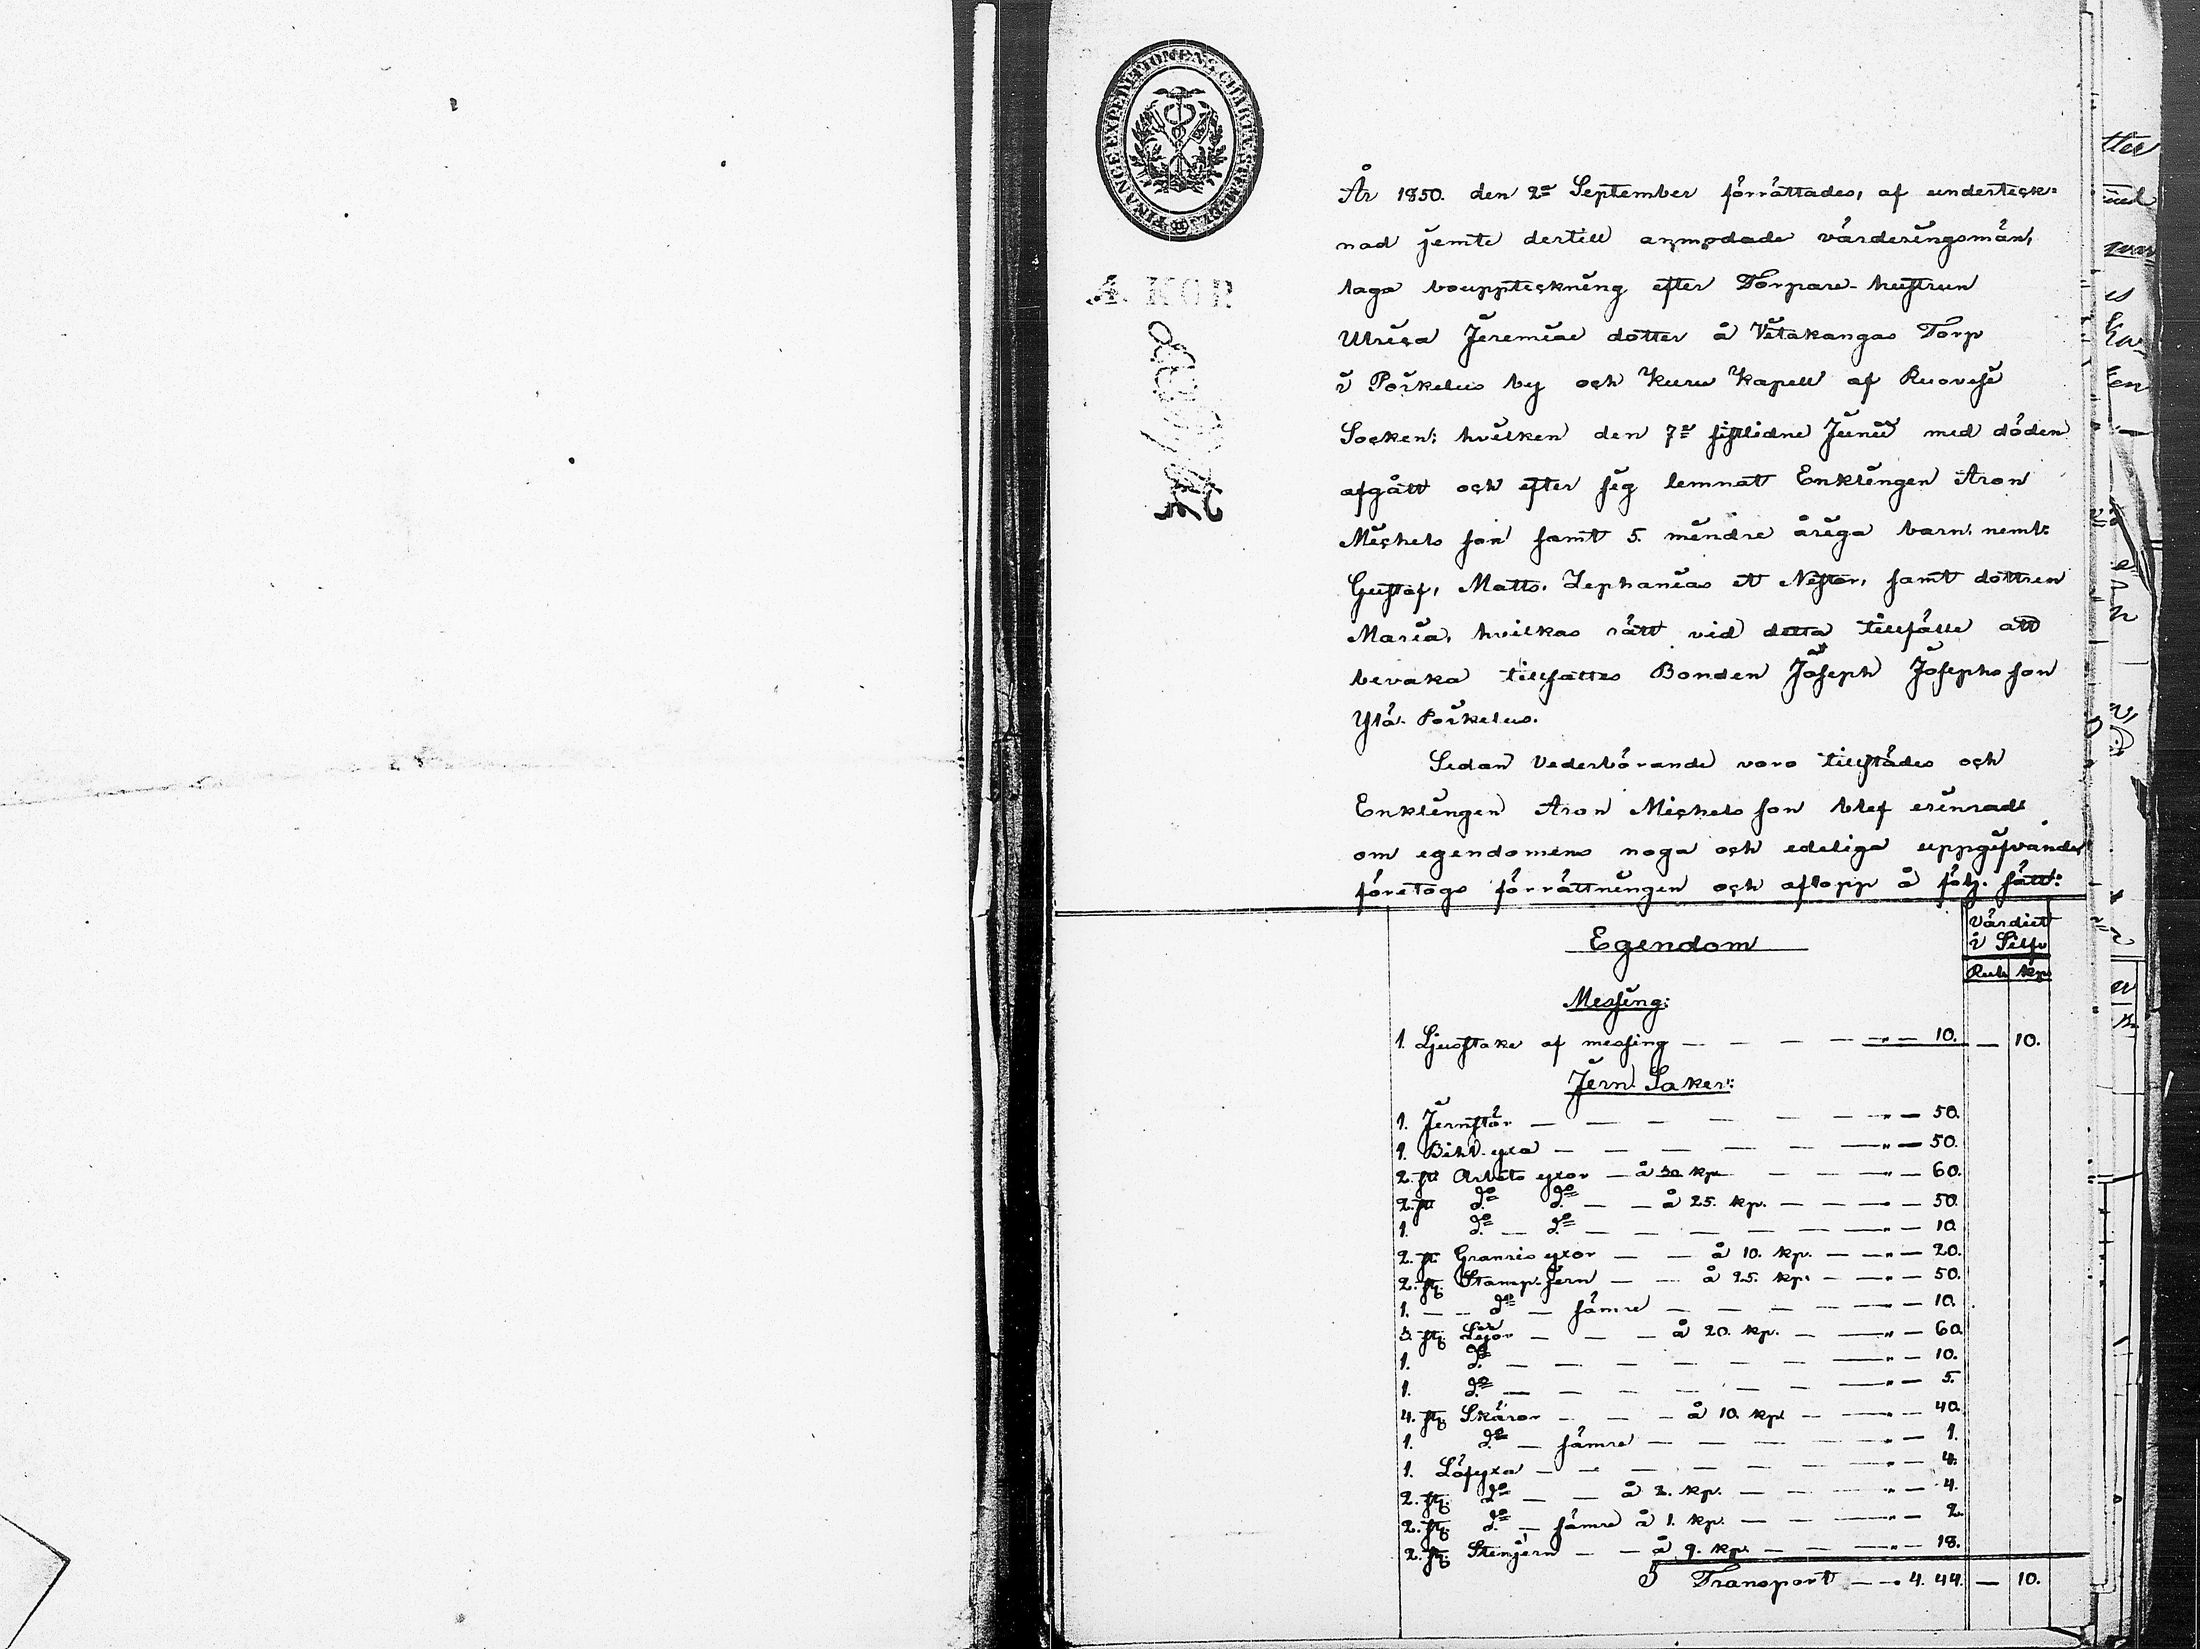 FINANCE EXPEDITIONENS CHARTÆ STEMPEL
4. KOP.
År 1850. den 2ª September förrättades, af underteck=
nad jemte dertill anmodade värderingsmän,
laga bouppteckning efter Torpare-hustrun
Ulrica Jeremiae dotter å Vitakangas Torp
i Poikelus by och Kuru Kapell af Ruovesi
Socken; hvilken den 7ª sistlidne Junii med döden
afgått och efter sig lemnat Enklingen Aron
Michels son samt 5. mindre åriga barn, neml:
Gustaf, Matts, Zephanias et Nestor, samt dottren
Maria, hvilkas rätt vid detta tillfälle att
bevaka tillsattes Bonden Joseph Josephs son
Ylä-Poikelus.
Sedan Vederbörande voro tillstädes och
Enklingen Aron Michels son blef erinrad
om egendomens noga och edeliga uppgifvande,
företogs förrättningen och aflopp å följ. sätt:
Egendom
Värdiet
i Silfv
Rub kp
Messing:
1. Ljusstake af messing — — — — " — 10. — 10.
Jern Saker:
1. Jernstör — — — — — " — 50.
1. Bihl. yxa — — — — — " — 50.
2. st Arbets yxor — å 30 kp — — — " — 60.
2. st dº dº — — å 25. kp. — — — " — 50.
1. dº — dº — — — — — " — 10.
2. st Granris yxor — — å 10. kp. — — " — 20.
2. st. Stamp-jern — — å 25. kp. — — " — 50.
1. — — dº — sämre — — — — " — 10.
3. st. Lior — — — å 20. kp. — — " — 60.
1. dº — — — — — — " — 10.
1. dº — — — — — — " — 5.
4. st. Skäror — — — å 10. kp — — " — 40.
1. dº — sämre — — — — — " — 1.
1. Löfyxa — — — — — — " — 4.
2. st. dº — — å 2. kp. — — — " — 4.
2. st. dº — sämre å 1. kp. — — — " — 2.
2. st. Stenjern — — å 9. kp. — — — " — 18.
Transport — — 4. 44. — 10.